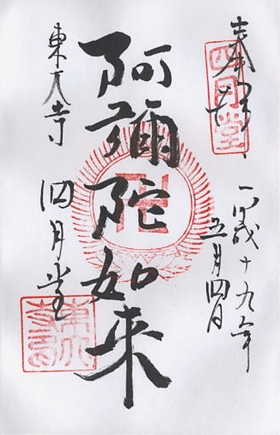 奉拝
四月堂
平成十九年
五月四日
阿彌陀如来
東大寺
四月堂